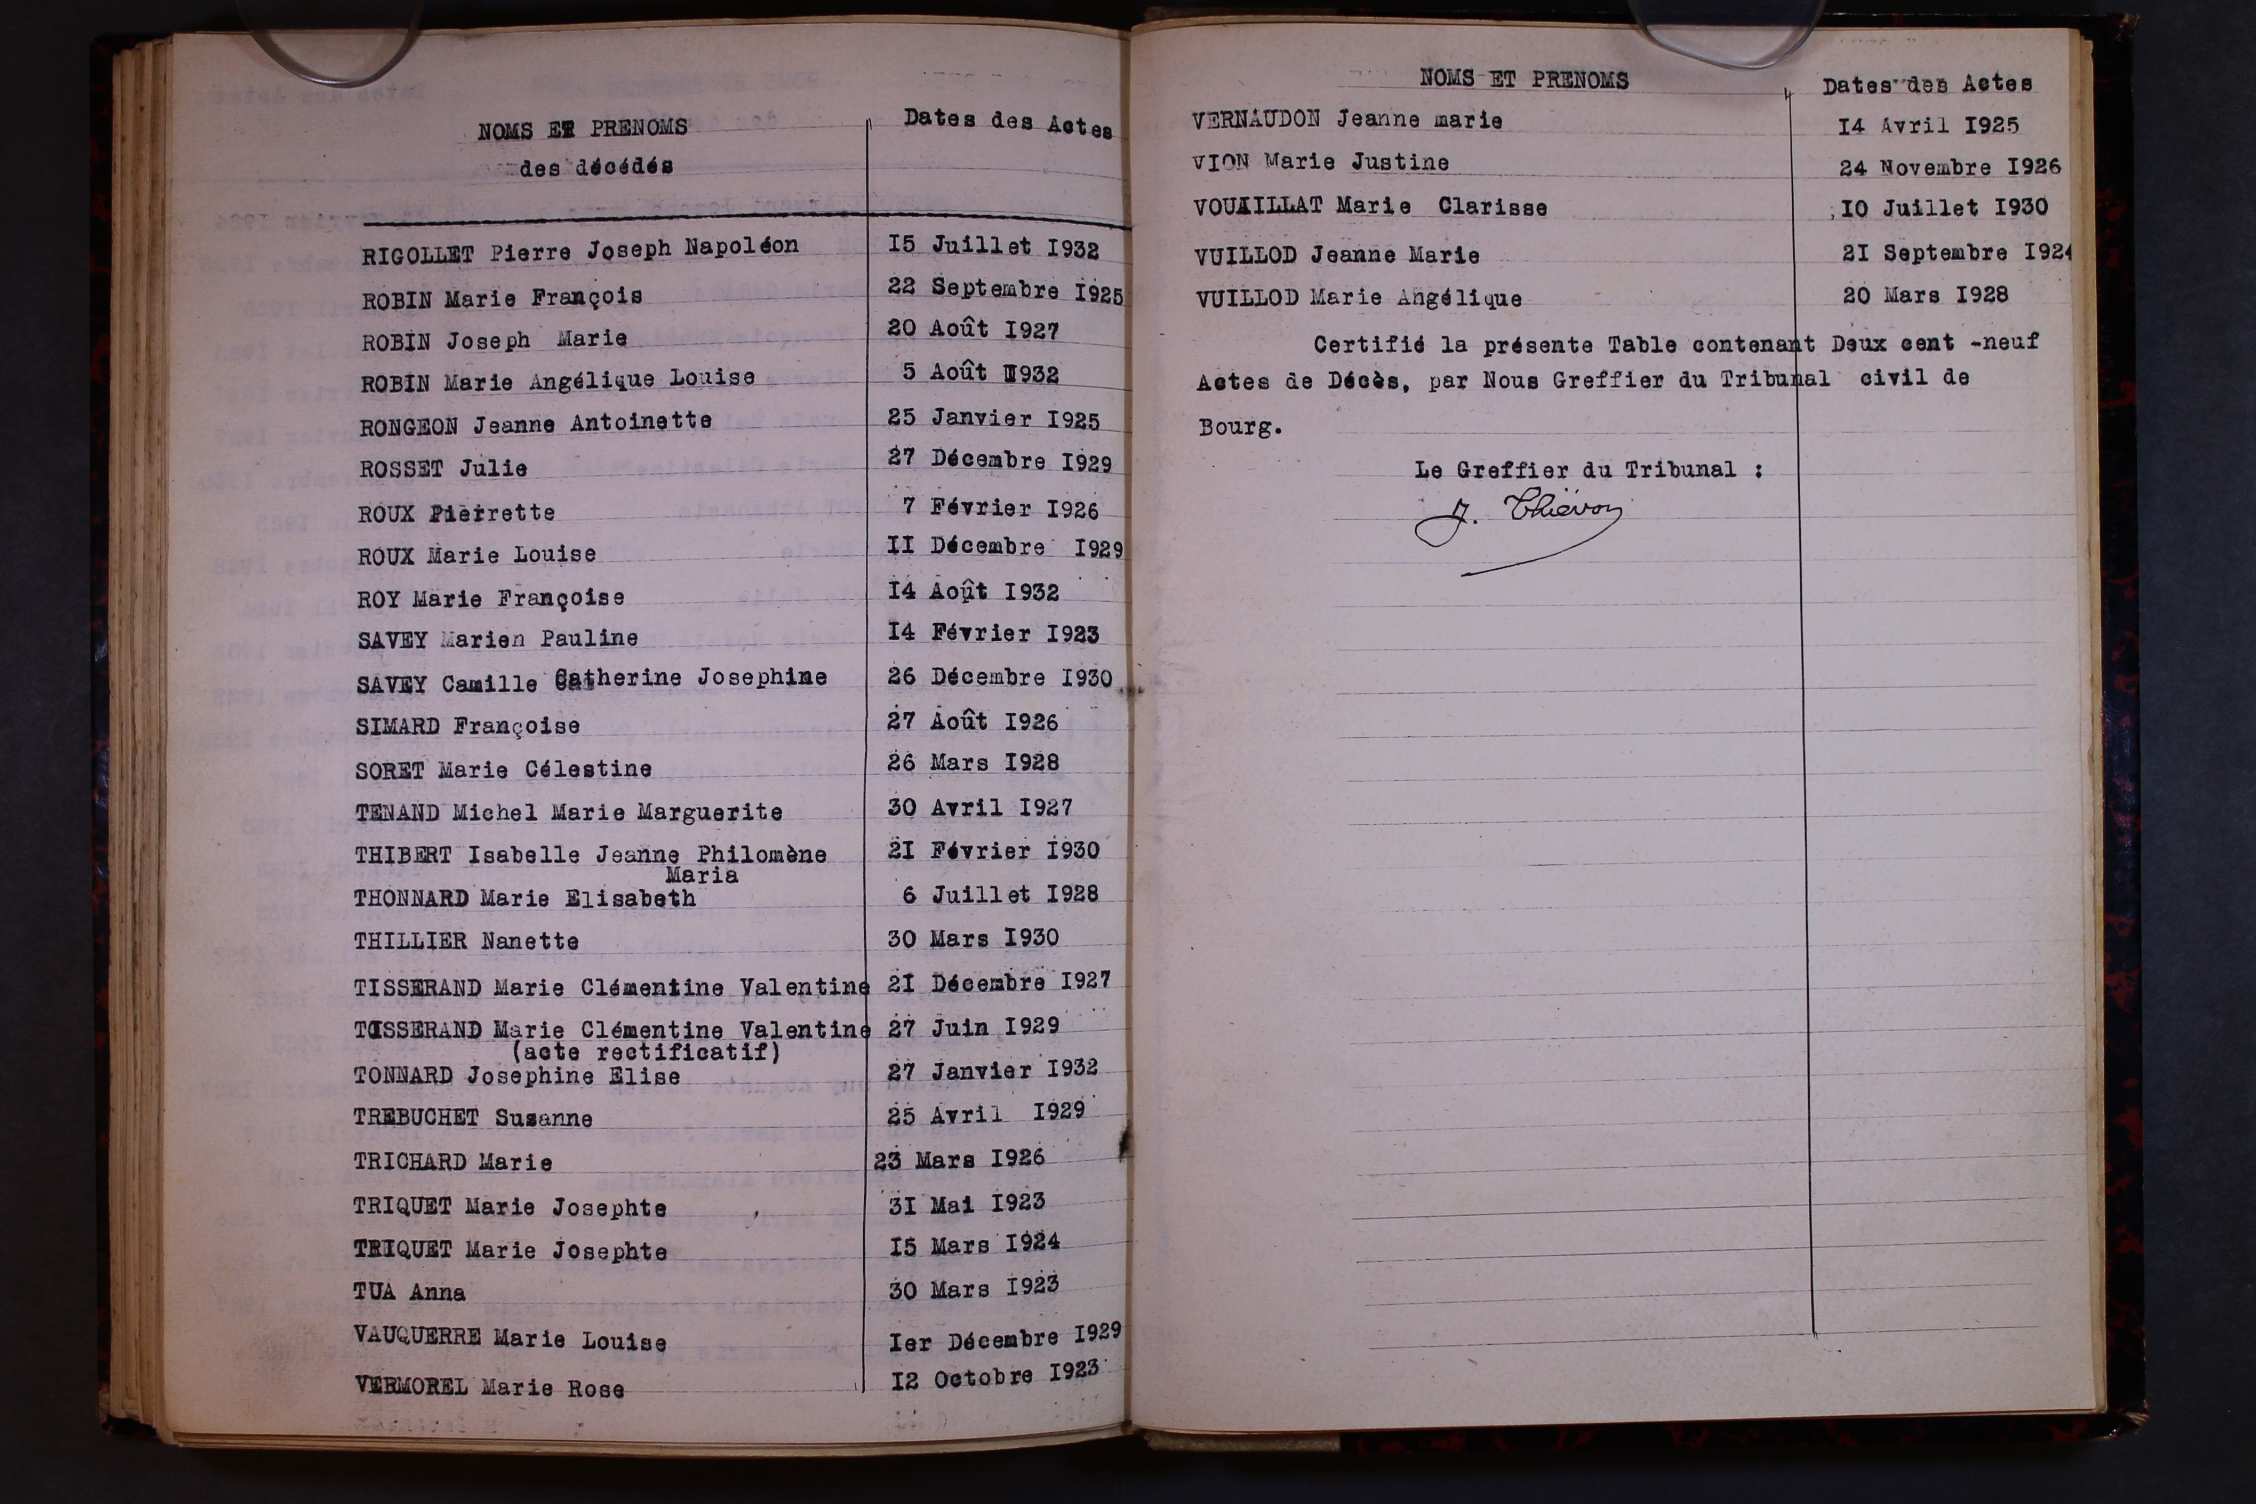 NOMS ET PRENOMS Dates des Actes
des décédés
RIGOLLET Pierre Joseph Napoléon 15 Juillet I932
ROBIN Marie François 22 Septembre I925
ROBIN Joseph Marie 20 Août I927
ROBIN Marie Angélique Louise 5 Août I932
RONGEON Jeanne Antoinette 25 Janvier I925
ROSSET Julie 27 Décembre I929
ROUX Pierrette 7 Février I926
ROUX Marie Louise II Décembre I929
ROY Marie Françoise I4 Août I932
SAVEY Marien Pauline I4 Février I923
SAVEY Camille Catherine Josephine 26 Décembre I930
SIMARD Françoise 27 Août I926
SORET Marie Célestine 26 Mars I928
TENAND Michel Marie Marguerite 30 Avril I927
THIBERT Isabelle Jeanne Philomène 2I Février I930
Maria
THONNARD Marie Elisabeth 6 Juillet I928
THILLIER Nanette 30 Mars I930
TISSERAND Marie Clémentine Valentine 2I Décembre I927
TISSERAND Marie Clémentine Valentine 27 Juin I929
(acte rectificatif)
TONNARD Josephine Elise 27 Janvier I932
TREBUCHET Suzanne 25 Avril I929
TRICHARD Marie 23 Mars I926
TRIQUET Marie Josephte 3I Mai I923
TRIQUET Marie Josephte I5 Mars I924
TUA Anna 30 Mars I923
VAUQUERRE Marie Louise Ier Décembre I929
VERMOREL Marie Rose I2 Octobre I923
NOMS ET PRENOMS Dates des Actes
VERNAUDON Jeanne marie I4 Avril I925
VION Marie Justine 24 Novembre I926
VOUAILLAT Marie Clarisse IO Juillet I930
VUILLOD Jeanne Marie 2I Septembre I924
VUILLOD Marie Angélique 20 Mars I928
Certifié la présente Table contenant Deux cent -neuf
Actes de Décès, par Nous Greffier du Tribunal civil de
Bourg.
Le Greffier du Tribunal :
J. Thiévon